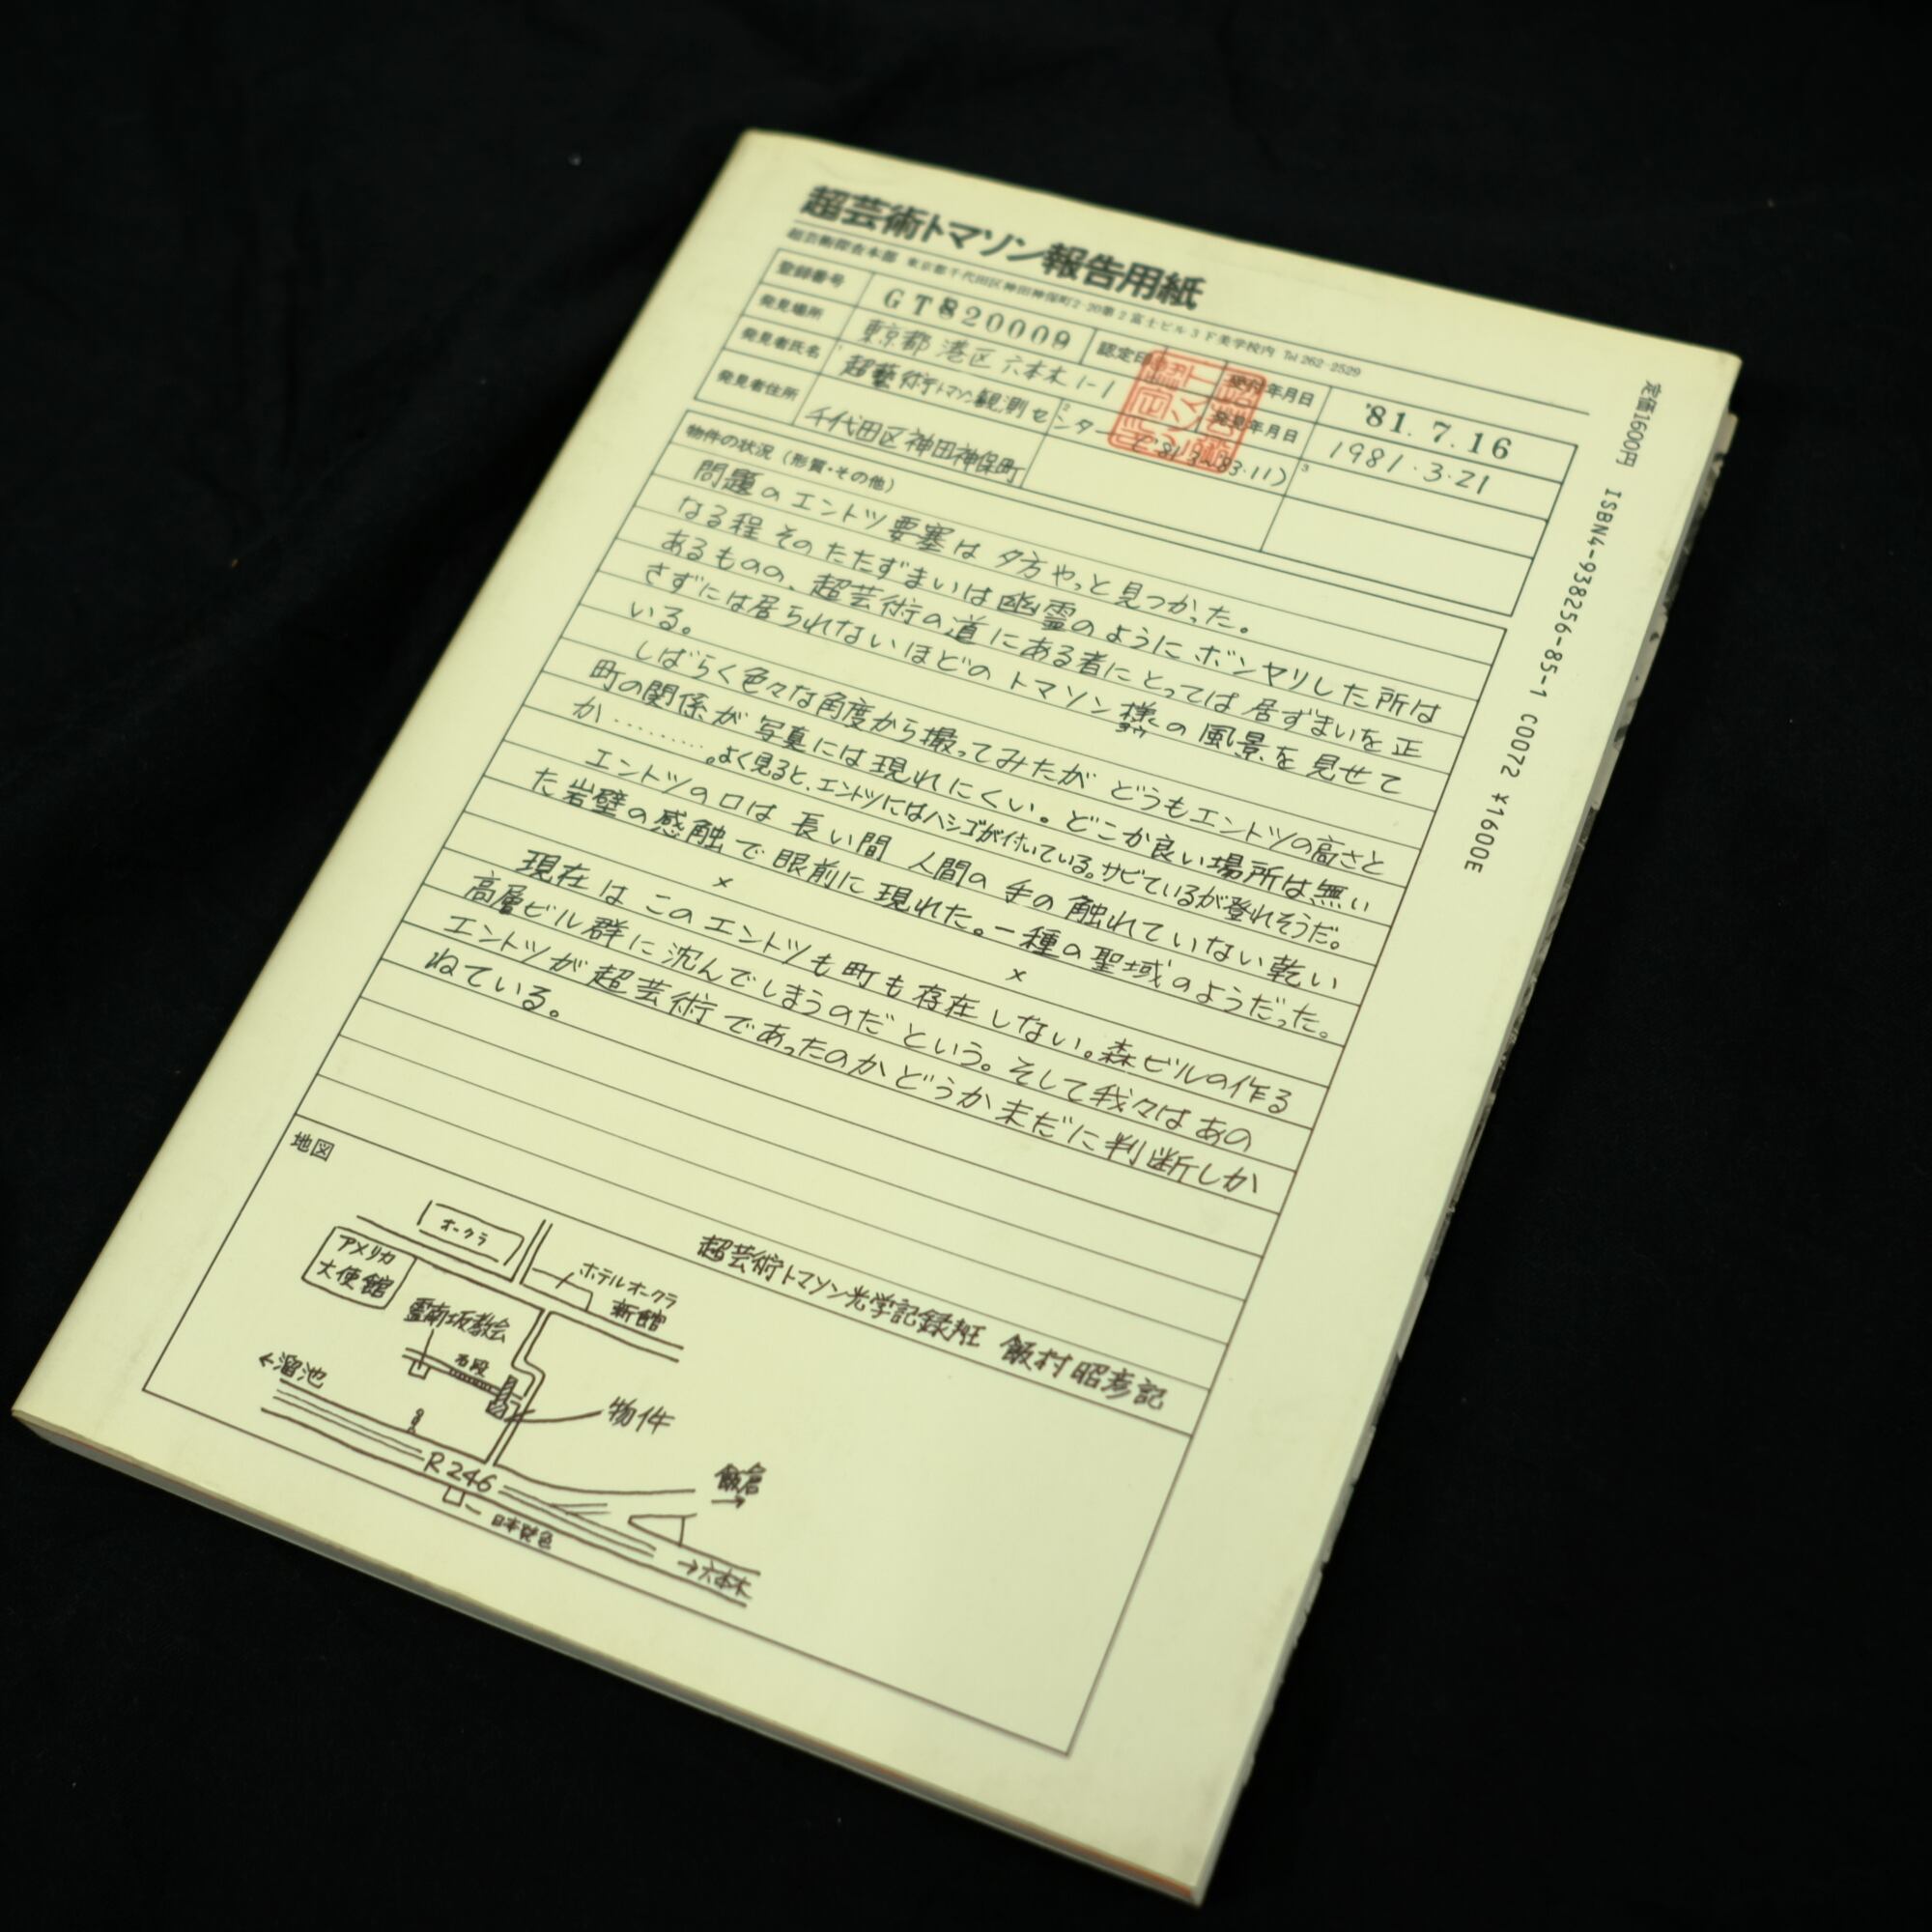 超芸術トマソン報告用紙
超芸術探査本部 東京都千代田区神田神保町2-20第2富士ビル3F美学校内 Tel 262-2529
登録番号 GT820009 認定印 受付年月日 '81.7.16
発見場所 東京都港区六本木1-1 発見年月日 1981.3.21
発見者氏名 1 超藝術トマソン観測センター 2 ('81.3~'83.11) 3
発見者住所 千代田区神田神保町
物件の状況（形質・その他）
問題のエントツ要塞は夕方やっと見つかった。
なる程そのたたずまいは幽霊のようにボンヤリした所は
あるものの、超芸術の道にある者にとっては居ずまいを正
さずには居られないほどのトマソン様の風景を見せて
いる。
しばらく色々な角度から撮ってみたがどうもエントツの高さと
町の関係が写真には現れにくい。どこか良い場所は無い
か………。よく見ると、エントツにはハシゴが付いている。サビているが登れそうだ。
エントツの口は長い間人間の手の触れていない乾い
た岩壁の感触で眼前に現れた。一種の聖域のようだった。
× ×
現在はこのエントツも町も存在しない。森ビルの作る
高層ビル群に沈んでしまうのだという。そして我々はあの
エントツが超芸術であったのかどうか未だに判断しか
ねている。
超芸術トマソン光学記録班 飯村昭彦記
地図
オークラ
アメリカ
大使館
ホテルオークラ
新館
霊南坂教会
石段
←溜池
物件
R246
飯倉
→
日本発色
→六本木
定価1600円 ISBN4-938256-85-1 C0072 ¥1600E